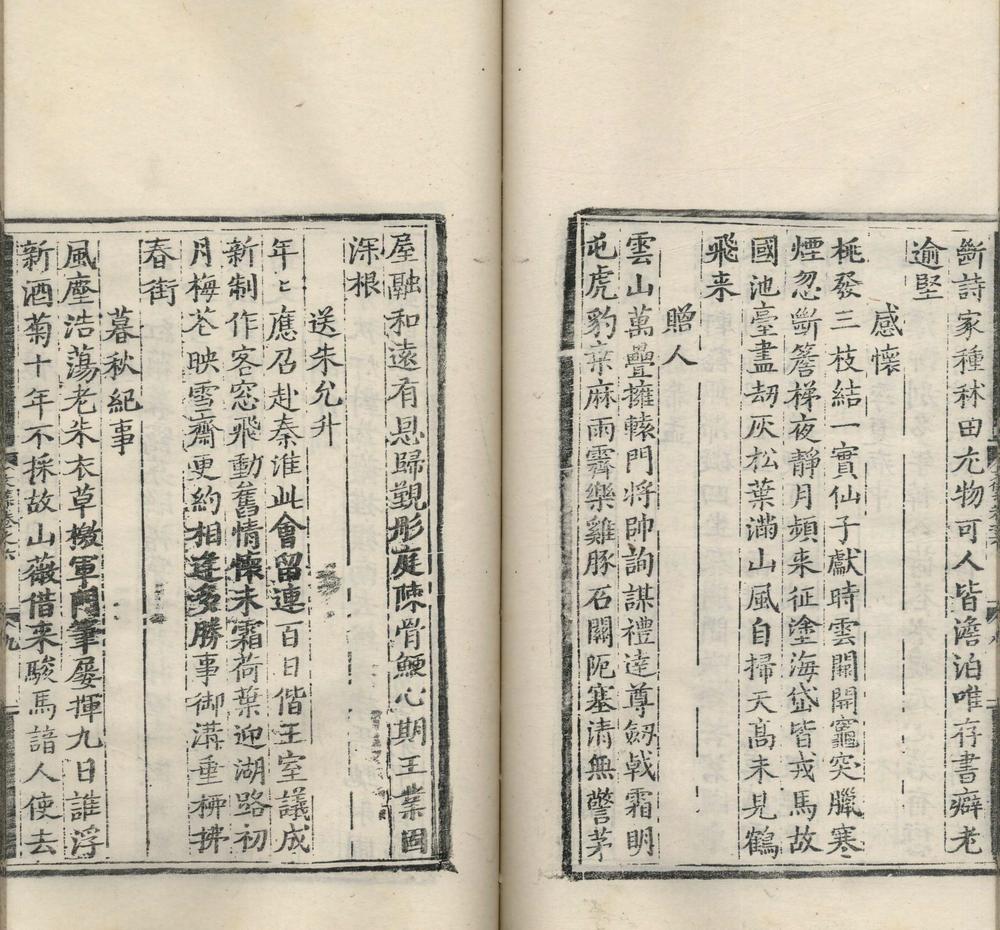 斷詩家種秫田尤物可人皆澹泊唯存書癖老
逾堅
感懷
桃發三枝結一實仙子獻時雲關開竈突臘寒
煙忽斷簷梯夜靜月頻来征塗海岱皆戎馬故
國池臺盡劫灰松葉滿山風自掃天髙未見鶴
飛来
贈人
雲山萬疊擁轅門将帥詢謀禮達尊劔戟霜明
屯虎豹桒麻雨霽樂雞豚石關阨塞清無警茅
屋融和遠有恩歸覲彤庭陳骨鯁心期王業固
深根
送朱允升
年〻應召赴秦淮此會留連百日偕王室議成
新制作客窓飛動舊情懐未霜荷葉迎湖路初
月梅花映雪齋更約相逢多勝事御溝垂栁拂
春街
暮秋紀事
風塵浩蕩老朱衣草檄軍門筆屡揮九日誰浮
新酒菊十年不採故山薇借来駿馬諳人使去
九